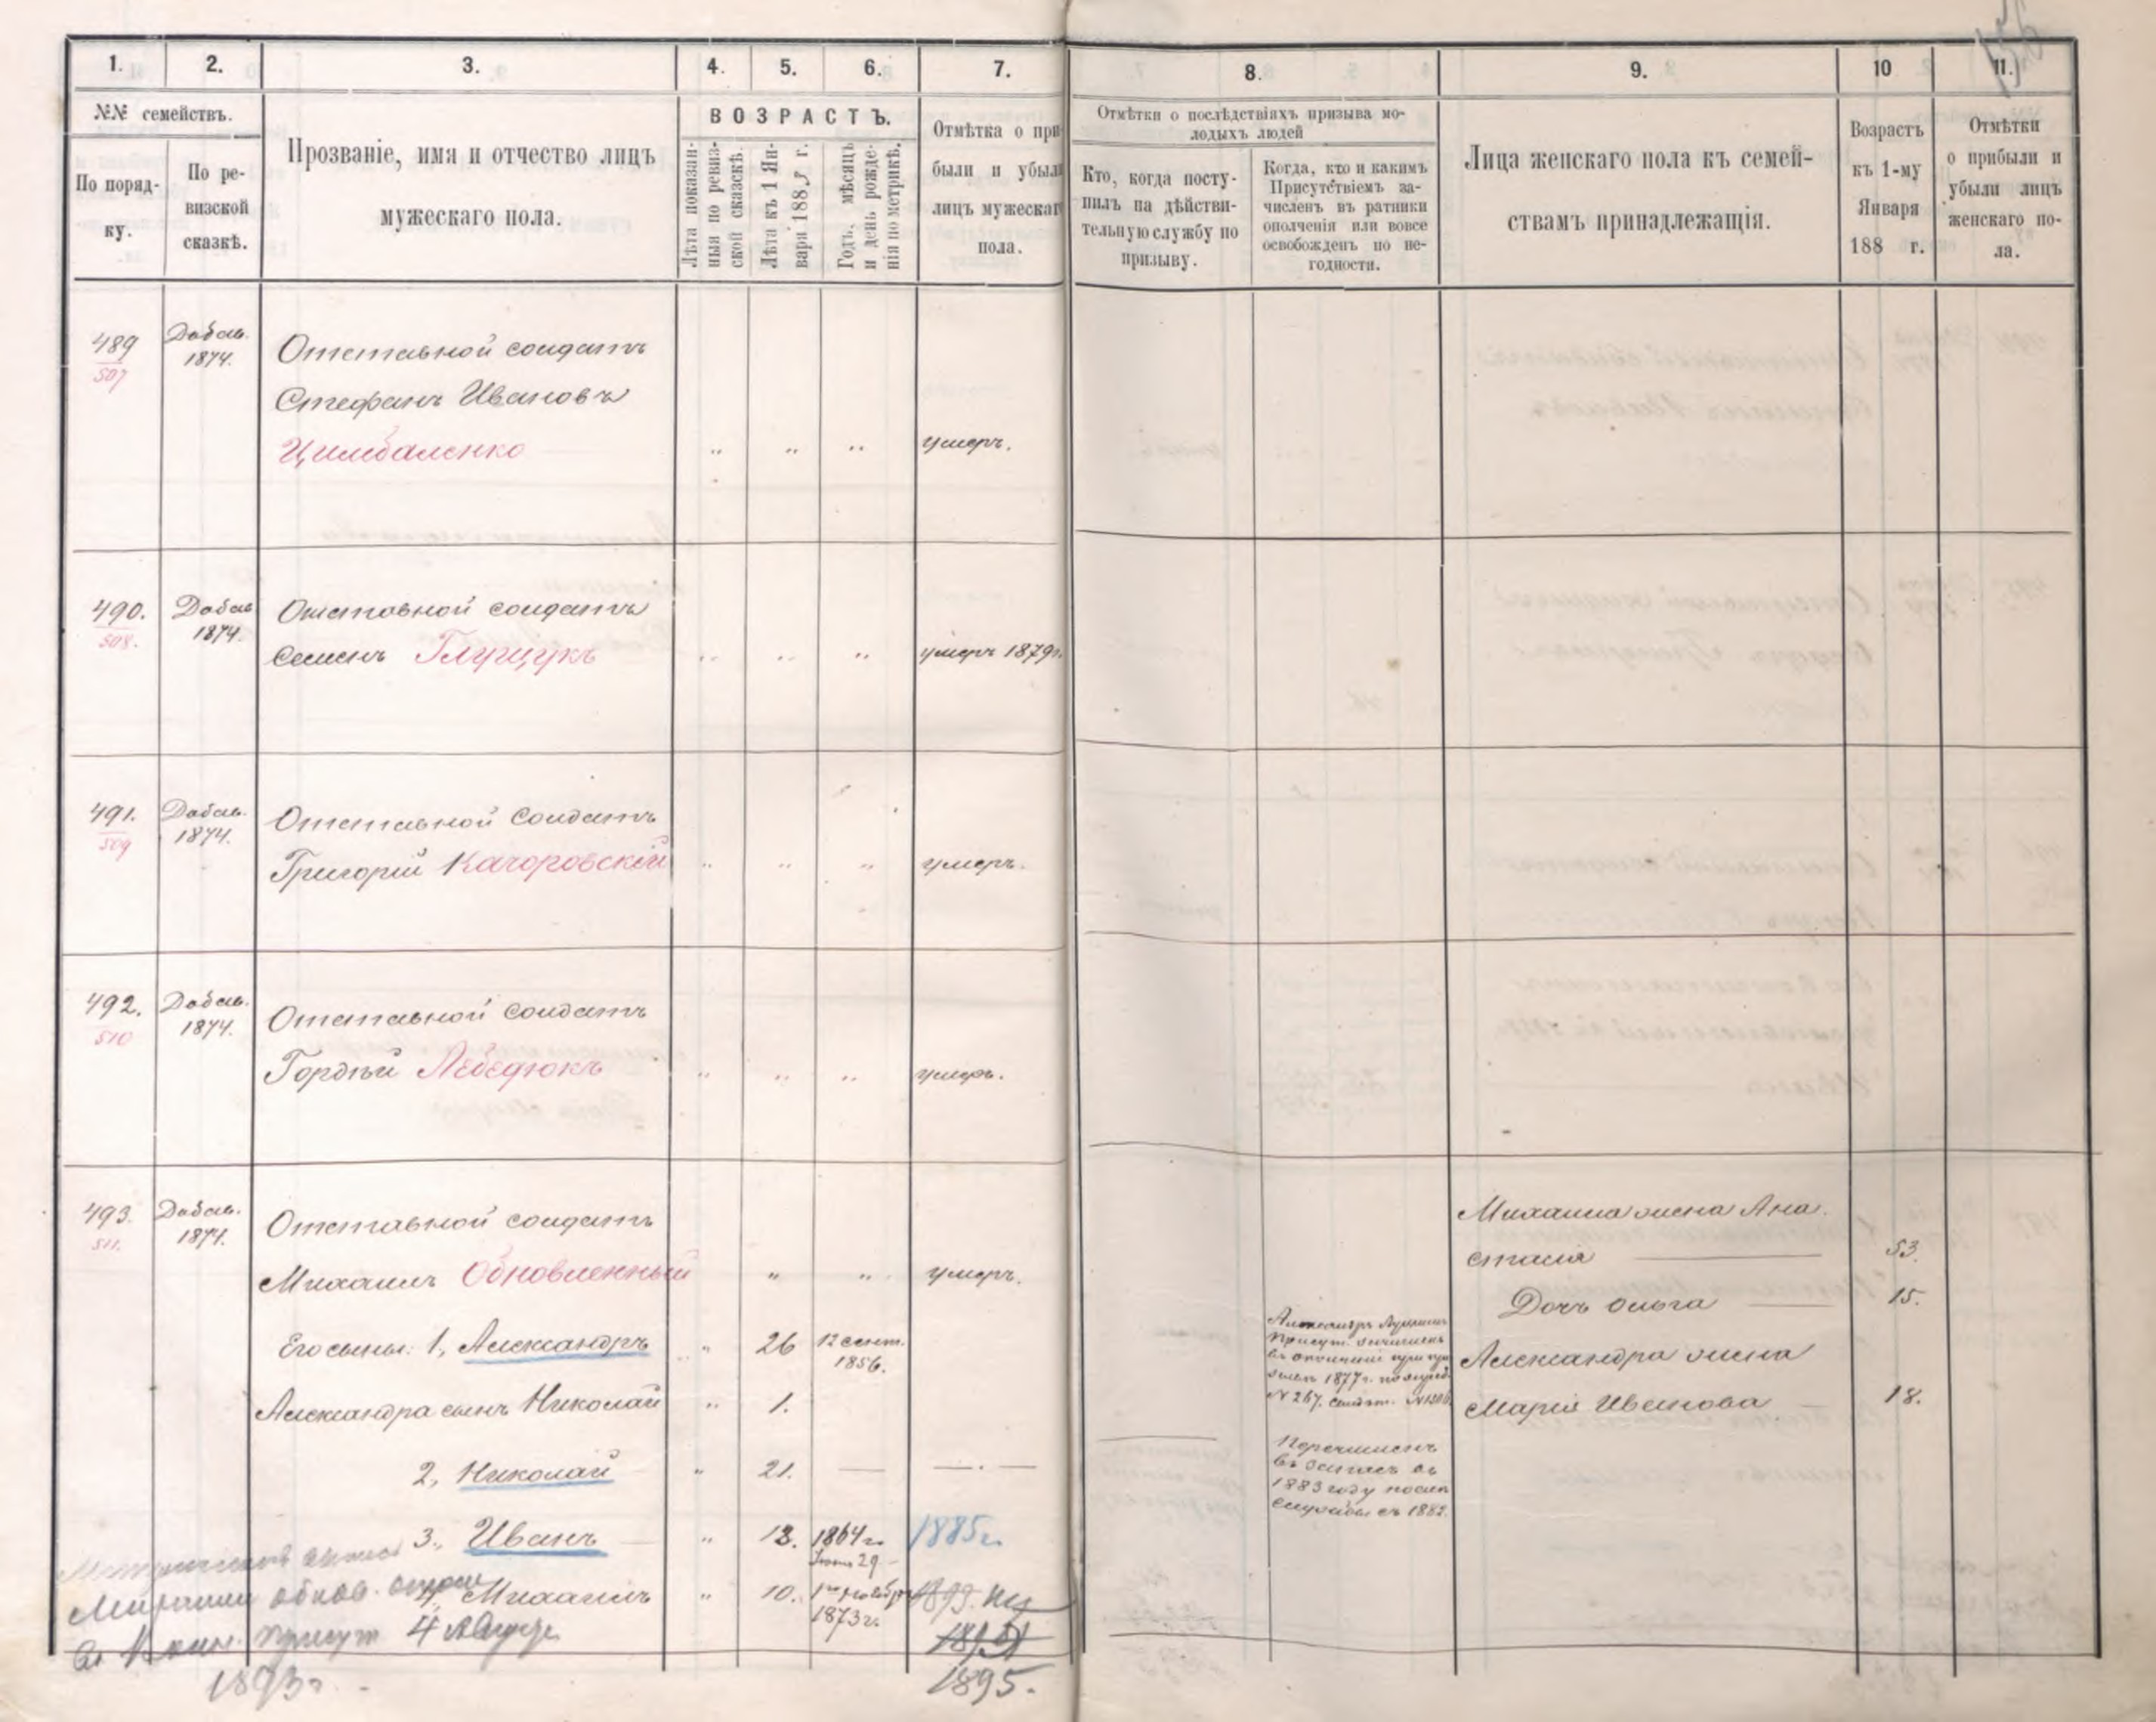 1.
2.
3.
4.
5.
6.
7.
№№ семействъ.
По поряд-
ку.
По ре-
визской
сказкѣ.
Прозваніе, имя и отчество лицъ
мужескаго пола.
ВОЗРАСТЪ.
Лѣта показан-
ныя по ревиз-
ской сказскѣ.
Лѣта къ 1 Ян-
варя 188 г.
Годъ, мѣсяцъ
и день рожде-
нія по метрикѣ.
Отмѣтка о при
были и убыли
лицъ мужескаг
пола.
8.
9.
10
11.
Отмѣтки о послѣдствіяхъ призыва мо-
лодыхъ людей
Кто, когда посту-
пилъ на дѣйстви-
тельную службу по
призыву.
Когда, кто и какимъ
Присутствіемъ за-
численъ въ ратники
ополченія или вовсе
освобожденъ по не-
годности.
Лица женскаго пола къ семей-
ствамъ принадлежащія.
Возрастъ
къ 1-му
Января
188 г.
Отмѣтки
о прибыли и
убыли лицъ
женскаго по-
ла.
489
507
Добав.
1874.
Отставной солдатъ
Стефанъ Ивановъ
Цимбаленко
" " " умеръ.
490.
508.
Добав
1874.
Отставной солдатъ
Семенъ Глущукъ
" " " умеръ 1879г.
491.
509
Добав.
1874.
Отставной солдатъ
Григорій Качоровскій
" " " умеръ.
492.
510
Добав.
1874.
Отставной солдатъ
Гордѣй Лебедюкъ
" " " умеръ.
493.
511.
Добав.
1874.
Отставной солдатъ
Михаилъ Обновленный
" " умеръ.
Его сыны: 1, Александръ " 26 12 сент.
1856.
Александра сынъ Николай " 1.
2, Николай " 21. — —.—
3., Иванъ " 18. 1864г. 1885г.
29
4, Михаилъ " 10. 1го Ноября
1873г.
1895.
4 Август
1893г.
Александръ
Присут. зачисленъ
въ ополченіе при
1877г.
№ 267.
Перечисленъ
въ запасъ въ
1883 году послѣ
службы съ 1882.
Михаила жена Ана-
стасія — 53.
Дочь Ольга — 15.
Александра жена
Марія Иванова — 18.